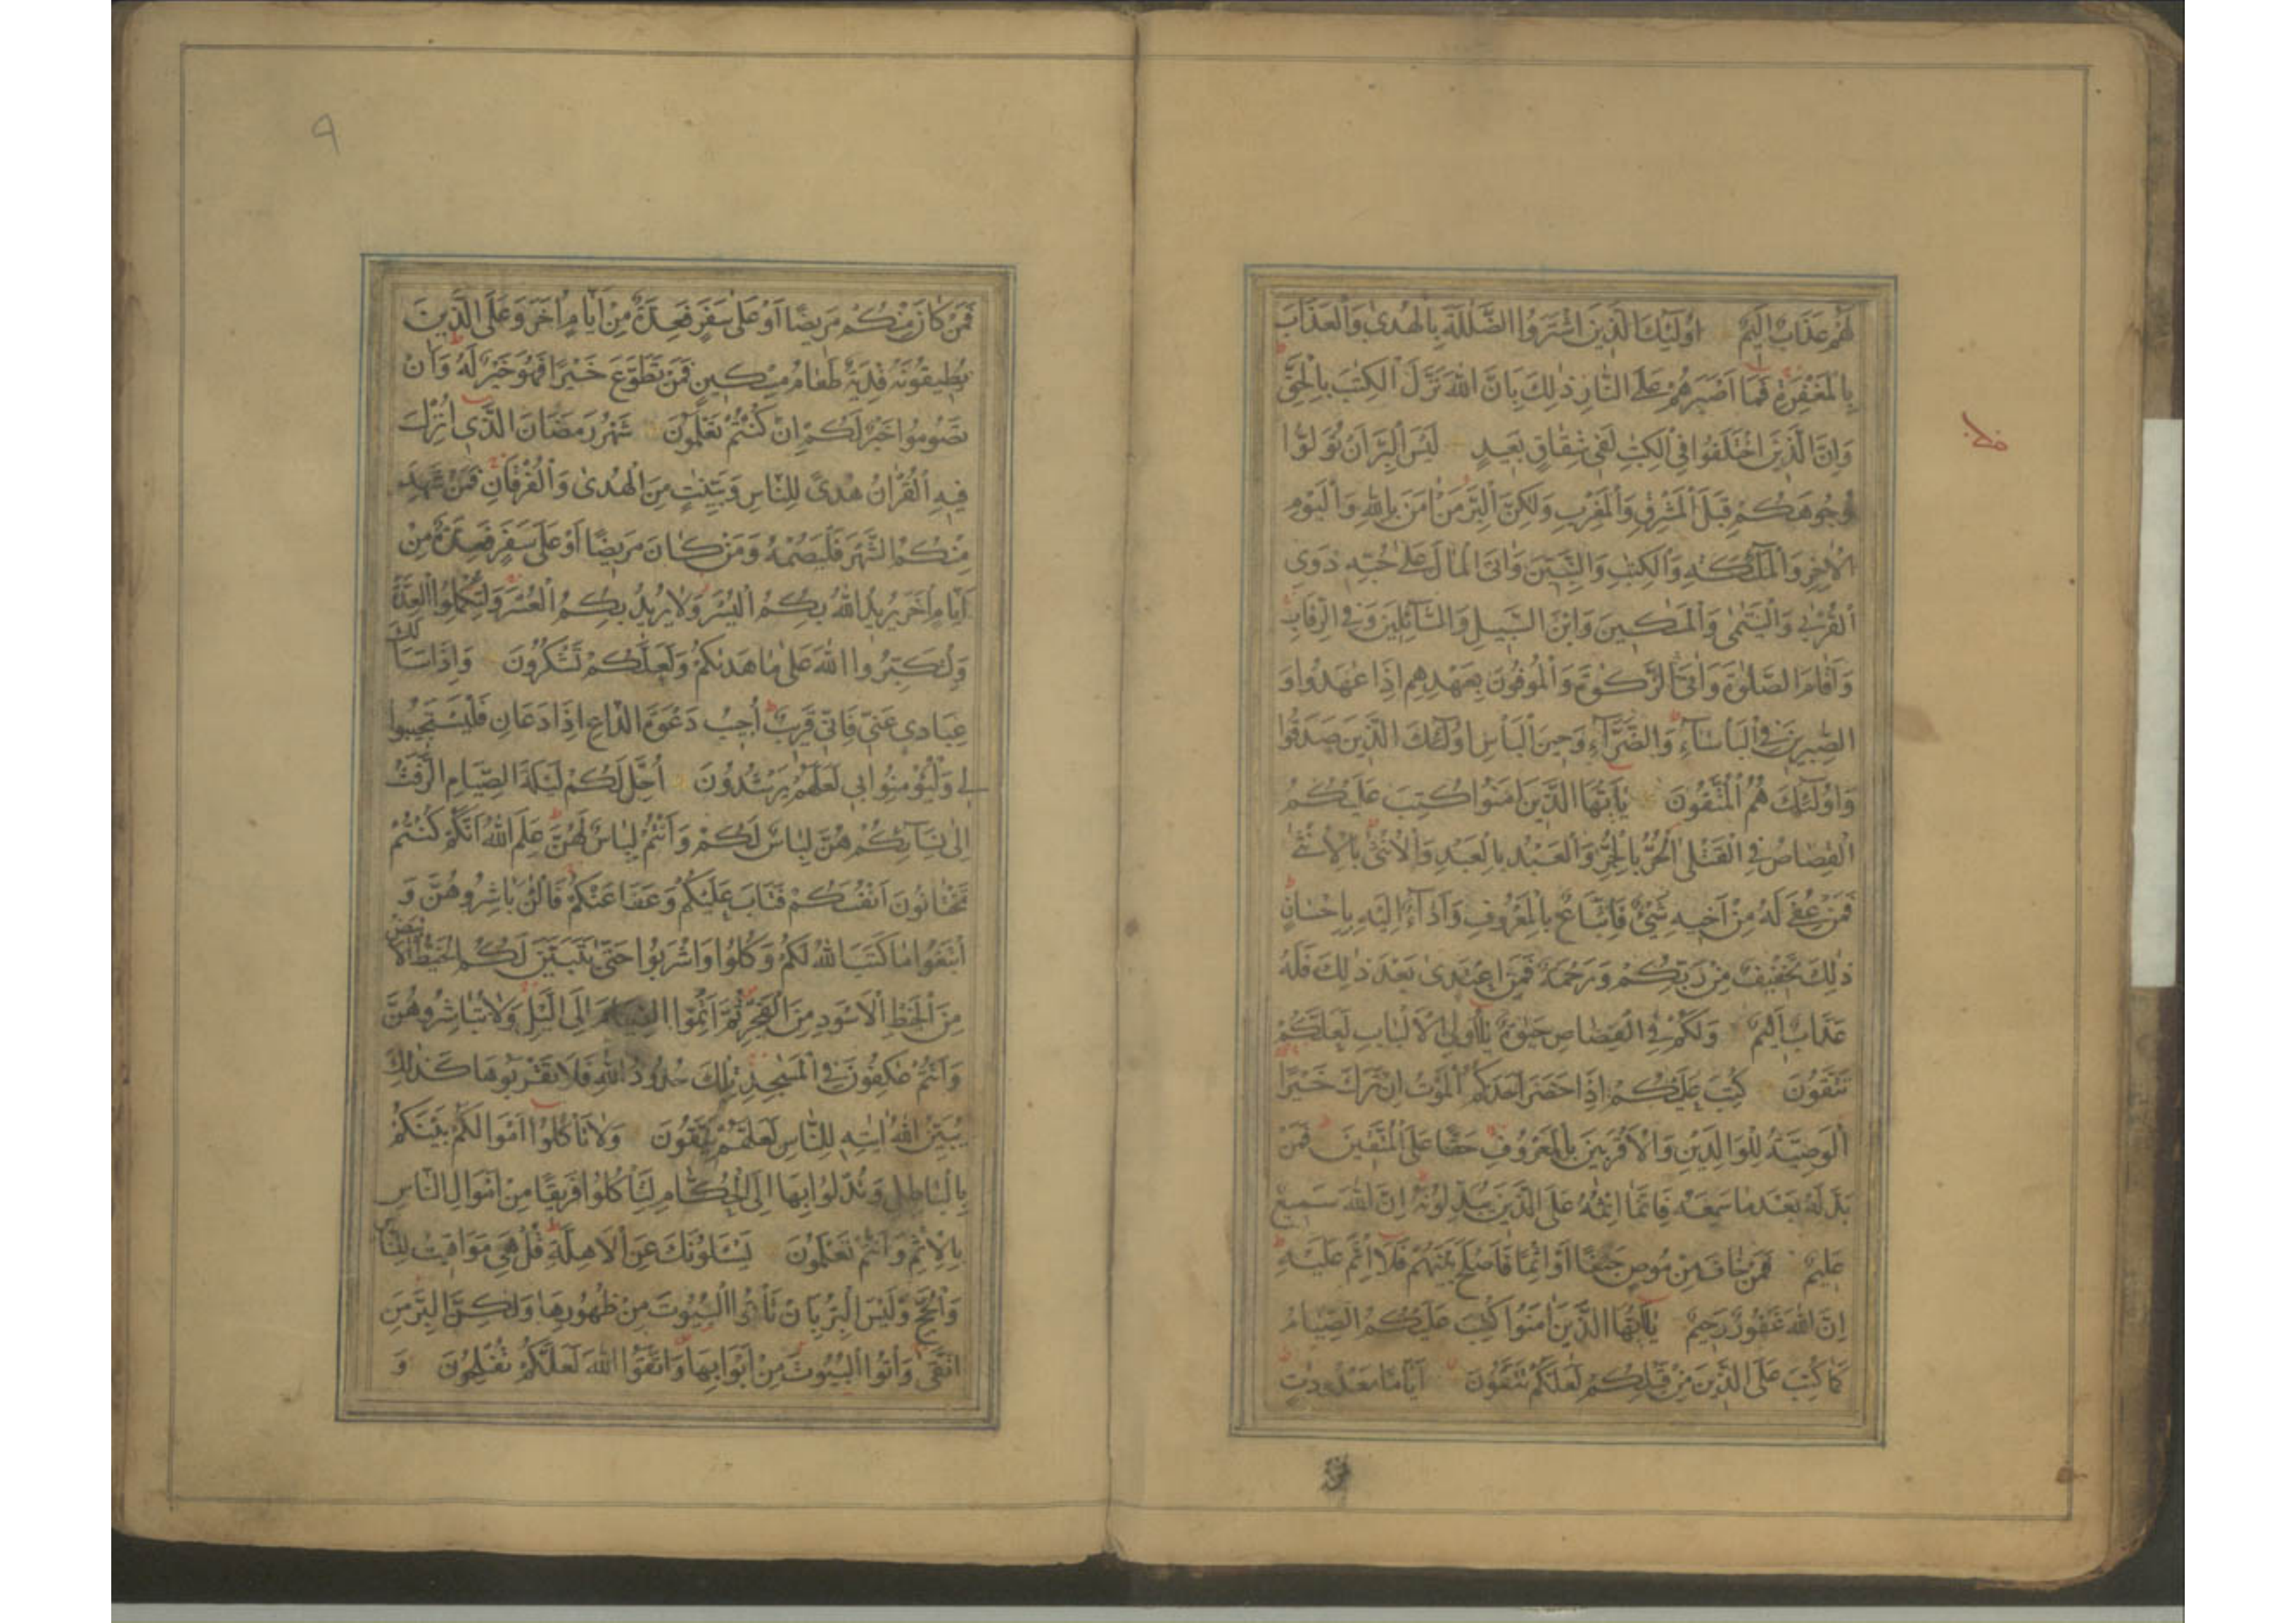 لَهُمْ عَذَابٌ اَلِيْمٌ اُولٰئِكَ الَّذِيْنَ اشْتَرَوُا الضَّلٰلَةَ بِالْهُدٰى وَالْعَذَابَ
بِالْمَغْفِرَةِ فَمَا اَصْبَرَهُمْ عَلَى النَّارِ ذٰلِكَ بِاَنَّ اللهَ نَزَّلَ الْكِتٰبَ بِالْحَقِّ
وَاِنَّ الَّذِيْنَ اخْتَلَفُوا فِى الْكِتٰبِ لَفِى شِقَاقٍ بَعِيْدٍ لَيْسَ الْبِرَّ اَنْ تُوَلُّوا
وُجُوهَكُمْ قِبَلَ الْمَشْرِقِ وَالْمَغْرِبِ وَلٰكِنَّ الْبِرَّ مَنْ اٰمَنَ بِاللهِ وَالْيَوْمِ
الْاٰخِرِ وَالْمَلٰٓئِكَةِ وَالْكِتٰبِ وَالنَّبِيّٖنَ وَاٰتَى الْمَالَ عَلٰى حُبِّهٖ ذَوِى
الْقُرْبٰى وَالْيَتٰمٰى وَالْمَسٰكِيْنَ وَابْنَ السَّبِيْلِ وَالسَّآئِلِيْنَ وَفِى الرِّقَابِ
وَاَقَامَ الصَّلٰوةَ وَاٰتَى الزَّكٰوةَ وَالْمُوفُونَ بِعَهْدِهِمْ اِذَا عٰهَدُوا وَ
الصّٰبِرِيْنَ فِى الْبَاْسَآءِ وَالضَّرَّآءِ وَحِيْنَ الْبَاْسِ اُولٰٓئِكَ الَّذِيْنَ صَدَقُوا
وَاُولٰٓئِكَ هُمُ الْمُتَّقُونَ يٰٓاَيُّهَا الَّذِيْنَ اٰمَنُوا كُتِبَ عَلَيْكُمُ
الْقِصَاصُ فِى الْقَتْلٰى اَلْحُرُّ بِالْحُرِّ وَالْعَبْدُ بِالْعَبْدِ وَالْاُنْثٰى بِالْاُنْثٰى
فَمَنْ عُفِىَ لَهُ مِنْ اَخِيْهِ شَىْءٌ فَاتِّبَاعٌ بِالْمَعْرُوفِ وَاَدَآءٌ اِلَيْهِ بِاِحْسَانٍ
ذٰلِكَ تَخْفِيْفٌ مِنْ رَبِّكُمْ وَرَحْمَةٌ فَمَنِ اعْتَدٰى بَعْدَ ذٰلِكَ فَلَهُ
عَذَابٌ اَلِيْمٌ وَلَكُمْ فِى الْقِصَاصِ حَيٰوةٌ يٰٓاُولِى الْاَلْبَابِ لَعَلَّكُمْ
تَتَّقُونَ كُتِبَ عَلَيْكُمْ اِذَا حَضَرَ اَحَدَكُمُ الْمَوْتُ اِنْ تَرَكَ خَيْرًا
الْوَصِيَّةُ لِلْوَالِدَيْنِ وَالْاَقْرَبِيْنَ بِالْمَعْرُوفِ حَقًّا عَلَى الْمُتَّقِيْنَ فَمَنْ
بَدَّلَهُ بَعْدَ مَا سَمِعَهُ فَاِنَّمَا اِثْمُهُ عَلَى الَّذِيْنَ يُبَدِّلُونَهُ اِنَّ اللهَ سَمِيْعٌ
عَلِيْمٌ فَمَنْ خَافَ مِنْ مُوصٍ جَنَفًا اَوْ اِثْمًا فَاَصْلَحَ بَيْنَهُمْ فَلَا اِثْمَ عَلَيْهِ
اِنَّ اللهَ غَفُورٌ رَحِيْمٌ يٰٓاَيُّهَا الَّذِيْنَ اٰمَنُوا كُتِبَ عَلَيْكُمُ الصِّيَامُ
كَمَا كُتِبَ عَلَى الَّذِيْنَ مِنْ قَبْلِكُمْ لَعَلَّكُمْ تَتَّقُونَ اَيَّامًا مَعْدُودٰتٍ
٩
فَمَنْ كَانَ مِنْكُمْ مَرِيْضًا اَوْ عَلٰى سَفَرٍ فَعِدَّةٌ مِنْ اَيَّامٍ اُخَرَ وَعَلَى الَّذِيْنَ
يُطِيْقُونَهُ فِدْيَةٌ طَعَامُ مِسْكِيْنٍ فَمَنْ تَطَوَّعَ خَيْرًا فَهُوَ خَيْرٌ لَهُ وَاَنْ
تَصُومُوا خَيْرٌ لَكُمْ اِنْ كُنْتُمْ تَعْلَمُونَ شَهْرُ رَمَضَانَ الَّذِى اُنْزِلَ
فِيْهِ الْقُرْاٰنُ هُدًى لِلنَّاسِ وَبَيِّنٰتٍ مِنَ الْهُدٰى وَالْفُرْقَانِ فَمَنْ شَهِدَ
مِنْكُمُ الشَّهْرَ فَلْيَصُمْهُ وَمَنْ كَانَ مَرِيْضًا اَوْ عَلٰى سَفَرٍ فَعِدَّةٌ مِنْ
اَيَّامٍ اُخَرَ يُرِيْدُ اللهُ بِكُمُ الْيُسْرَ وَلَا يُرِيْدُ بِكُمُ الْعُسْرَ وَلِتُكْمِلُوا الْعِدَّةَ
وَلِتُكَبِّرُوا اللهَ عَلٰى مَا هَدٰىكُمْ وَلَعَلَّكُمْ تَشْكُرُونَ وَاِذَا سَاَلَكَ
عِبَادِى عَنِّى فَاِنِّى قَرِيْبٌ اُجِيْبُ دَعْوَةَ الدَّاعِ اِذَا دَعَانِ فَلْيَسْتَجِيْبُوا
لِى وَلْيُؤْمِنُوا بِى لَعَلَّهُمْ يَرْشُدُونَ اُحِلَّ لَكُمْ لَيْلَةَ الصِّيَامِ الرَّفَثُ
اِلٰى نِسَآئِكُمْ هُنَّ لِبَاسٌ لَكُمْ وَاَنْتُمْ لِبَاسٌ لَهُنَّ عَلِمَ اللهُ اَنَّكُمْ كُنْتُمْ
تَخْتَانُونَ اَنْفُسَكُمْ فَتَابَ عَلَيْكُمْ وَعَفَا عَنْكُمْ فَالْئٰنَ بَاشِرُوهُنَّ وَ
ابْتَغُوا مَا كَتَبَ اللهُ لَكُمْ وَكُلُوا وَاشْرَبُوا حَتّٰى يَتَبَيَّنَ لَكُمُ الْخَيْطُ الْاَبْيَضُ
مِنَ الْخَيْطِ الْاَسْوَدِ مِنَ الْفَجْرِ ثُمَّ اَتِمُّوا الصِّيَامَ اِلَى الَّيْلِ وَلَا تُبَاشِرُوهُنَّ
وَاَنْتُمْ عٰكِفُونَ فِى الْمَسٰجِدِ تِلْكَ حُدُودُ اللهِ فَلَا تَقْرَبُوهَا كَذٰلِكَ
يُبَيِّنُ اللهُ اٰيٰتِهٖ لِلنَّاسِ لَعَلَّهُمْ يَتَّقُونَ وَلَا تَاْكُلُوا اَمْوَالَكُمْ بَيْنَكُمْ
بِالْبَاطِلِ وَتُدْلُوا بِهَا اِلَى الْحُكَّامِ لِتَاْكُلُوا فَرِيْقًا مِنْ اَمْوَالِ النَّاسِ
بِالْاِثْمِ وَاَنْتُمْ تَعْلَمُونَ يَسْئَلُونَكَ عَنِ الْاَهِلَّةِ قُلْ هِىَ مَوَاقِيْتُ لِلنَّاسِ
وَالْحَجِّ وَلَيْسَ الْبِرُّ بِاَنْ تَاْتُوا الْبُيُوتَ مِنْ ظُهُورِهَا وَلٰكِنَّ الْبِرَّ مَنِ
اتَّقٰى وَاْتُوا الْبُيُوتَ مِنْ اَبْوَابِهَا وَاتَّقُوا اللهَ لَعَلَّكُمْ تُفْلِحُونَ وَ